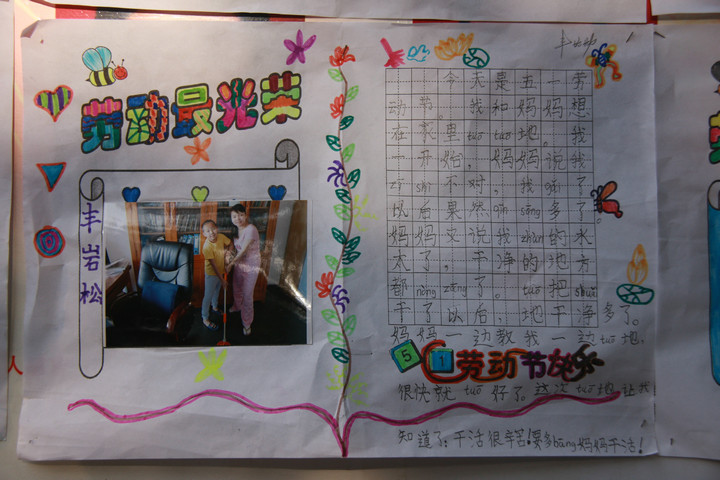 劳动最光荣
丰岩松
今天是五一劳
动节。我和妈妈想
在家里tuō tuō地。我
一开始，妈妈说我
zī shì不对，我gǎi了
以后果然qīn sōng多了。
妈妈又说我zhàn的水
太了，干净的地方
都nòng zāng了。tuō把shuǎi
干了以后，地干净多了。
妈妈一边教我一边tuō地，
5 1 劳动节快乐
很快就tuō好了。这次tuō地让我
知道了：干活很辛苦！要多bāng妈妈干活！